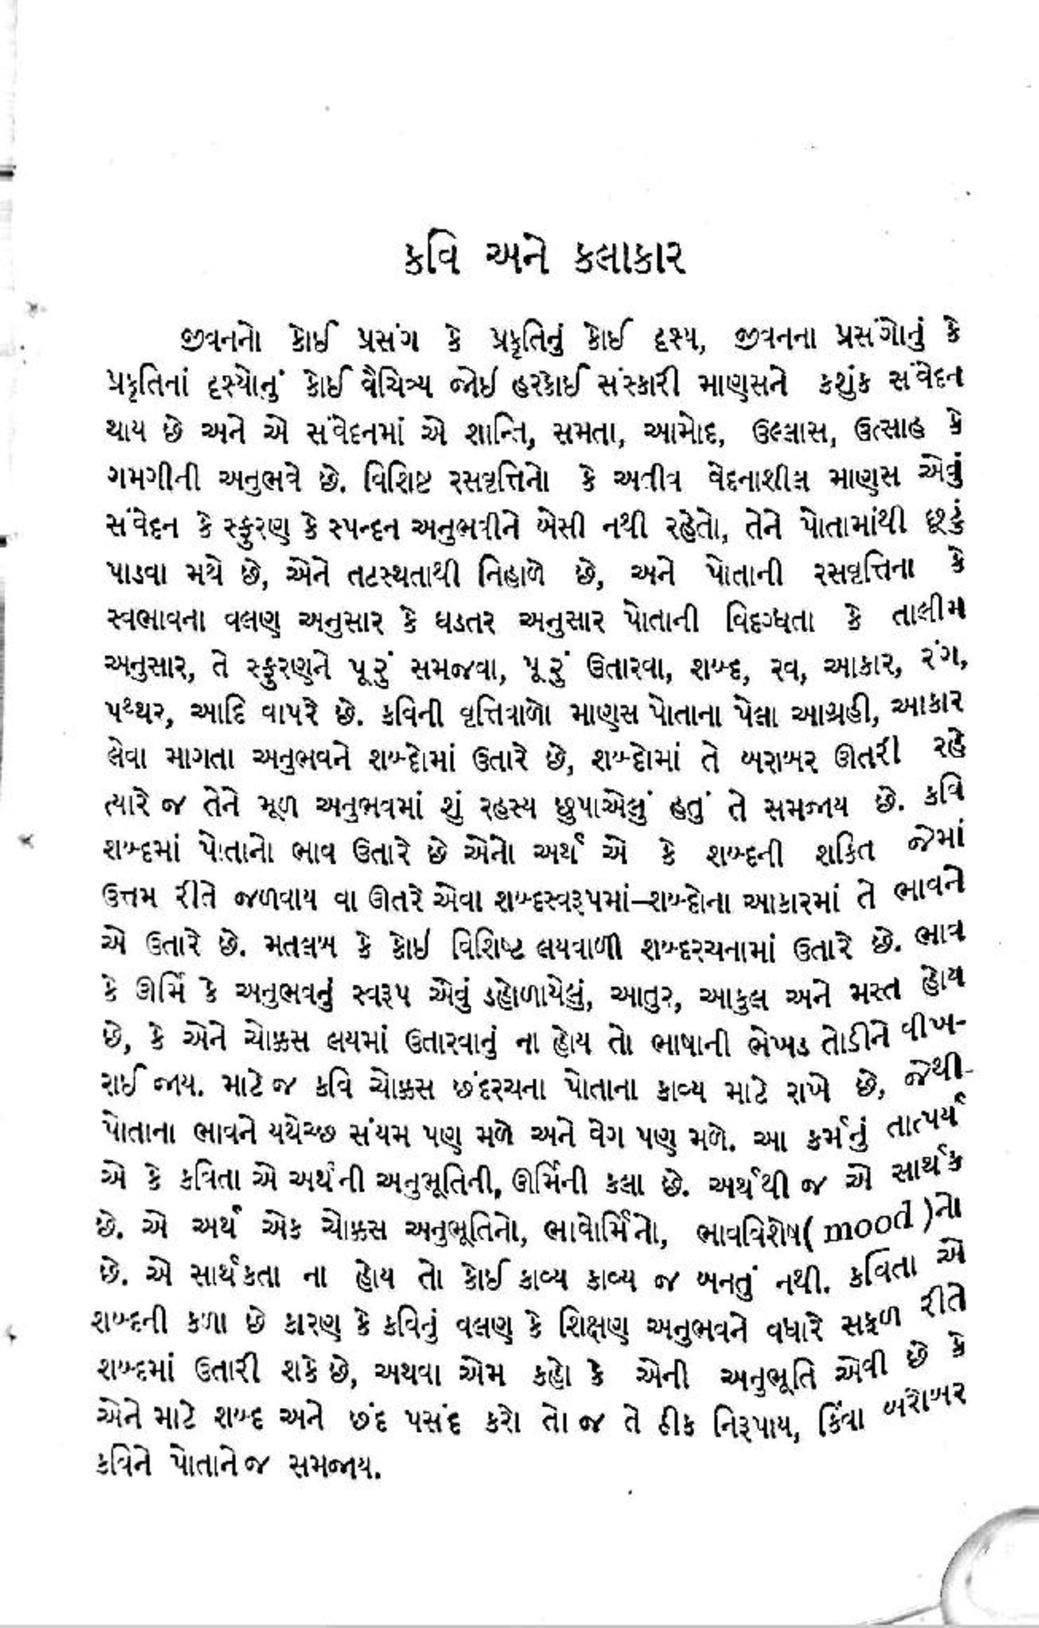 કવિ અને કલાકાર
જીવનનો કોઈ પ્રસંગ કે પ્રકૃતિનું કોઈ દૃશ્ય, જીવનના પ્રસંગોનું કે
પ્રકૃતિનાં દૃશ્યોનું કોઈ વૈચિત્ર્ય જોઈ હરકોઈ સંસ્કારી માણસને કશુંક સંવેદન
થાય છે અને એ સંવેદનમાં એ શાન્તિ, સમતા, આમોદ, ઉલ્લાસ, ઉત્સાહ કે
ગમગીની અનુભવે છે. વિશિષ્ટ રસવૃત્તિનો કે અતીવ વેદનાશીલ માણસ એવું
સંવેદન કે સ્ફુરણ કે સ્પન્દન અનુભવીને બેસી નથી રહેતો, તેને પોતામાંથી છૂટું
પાડવા મથે છે, એને તટસ્થતાથી નિહાળે છે, અને પોતાની રસવૃત્તિના કે
સ્વભાવના વલણ અનુસાર કે ઘડતર અનુસાર પોતાની વિદગ્ધતા કે તાલીમ
અનુસાર, તે સ્ફુરણને પૂરું સમજવા, પૂરું ઉતારવા, શબ્દ, રવ, આકાર, રંગ,
પથ્થર, આદિ વાપરે છે. કવિની વૃત્તિવાળો માણસ પોતાના પેલા આગ્રહી, આકાર
લેવા માગતા અનુભવને શબ્દોમાં ઉતારે છે, શબ્દોમાં તે બરાબર ઊતરી રહે
ત્યારે જ તેને મૂળ અનુભવમાં શું રહસ્ય છુપાએલું હતું તે સમજાય છે. કવિ
શબ્દમાં પોતાનો ભાવ ઉતારે છે એનો અર્થ એ કે શબ્દની શક્તિ જેમાં
ઉત્તમ રીતે જળવાય વા ઊતરે એવા શબ્દસ્વરૂપમાં–શબ્દોના આકારમાં તે ભાવને
એ ઉતારે છે. મતલબ કે કોઈ વિશિષ્ટ લયવાળી શબ્દરચનામાં ઉતારે છે. ભાવ
કે ઊર્મિ કે અનુભવનું સ્વરૂપ એવું ડહોળાયેલું, આતુર, આકુલ અને મસ્ત હોય
છે, કે એને ચોક્કસ લયમાં ઉતારવાનું ના હોય તો ભાષાની ભેખડ તોડીને વીખ-
રાઈ જાય. માટે જ કવિ ચોક્કસ છંદરચના પોતાના કાવ્ય માટે રાખે છે, જેથી
પોતાના ભાવને યથેચ્છ સંયમ પણ મળે અને વેગ પણ મળે. આ કર્મનું તાત્પર્ય
એ કે કવિતા એ અર્થની અનુભૂતિની, ઊર્મિની કલા છે. અર્થથી જ એ સાર્થક
છે. એ અર્થ એક ચોક્કસ અનુભૂતિનો, ભાવોર્મિનો, ભાવવિશેષ(mood)નો
છે. એ સાર્થકતા ના હોય તો કોઈ કાવ્ય કાવ્ય જ બનતું નથી. કવિતા એ
શબ્દની કળા છે કારણ કે કવિનું વલણ કે શિક્ષણ અનુભવને વધારે સફળ રીતે
શબ્દમાં ઉતારી શકે છે, અથવા એમ કહો કે એની અનુભૂતિ એવી છે કે
એને માટે શબ્દ અને છંદ પસંદ કરો તો જ તે ઠીક નિરૂપાય, કિંવા બરોબર
કવિને પોતાને જ સમજાય.